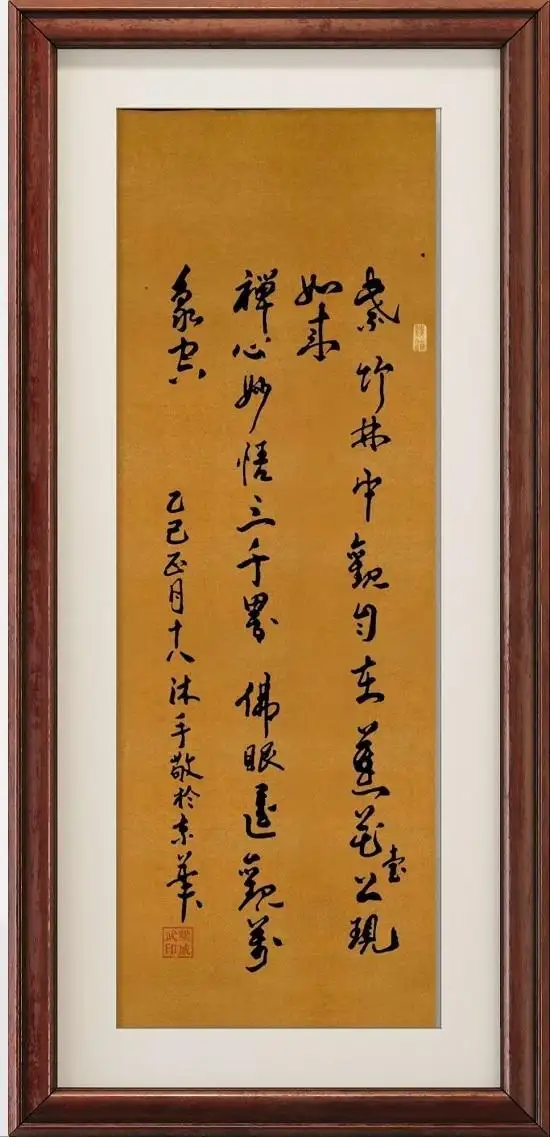 紫竹林中觀自在蓮花臺上現
如来
禅心妙悟三千界佛眼遥觀萬
象空
乙巳正月十八沐手敬於京華